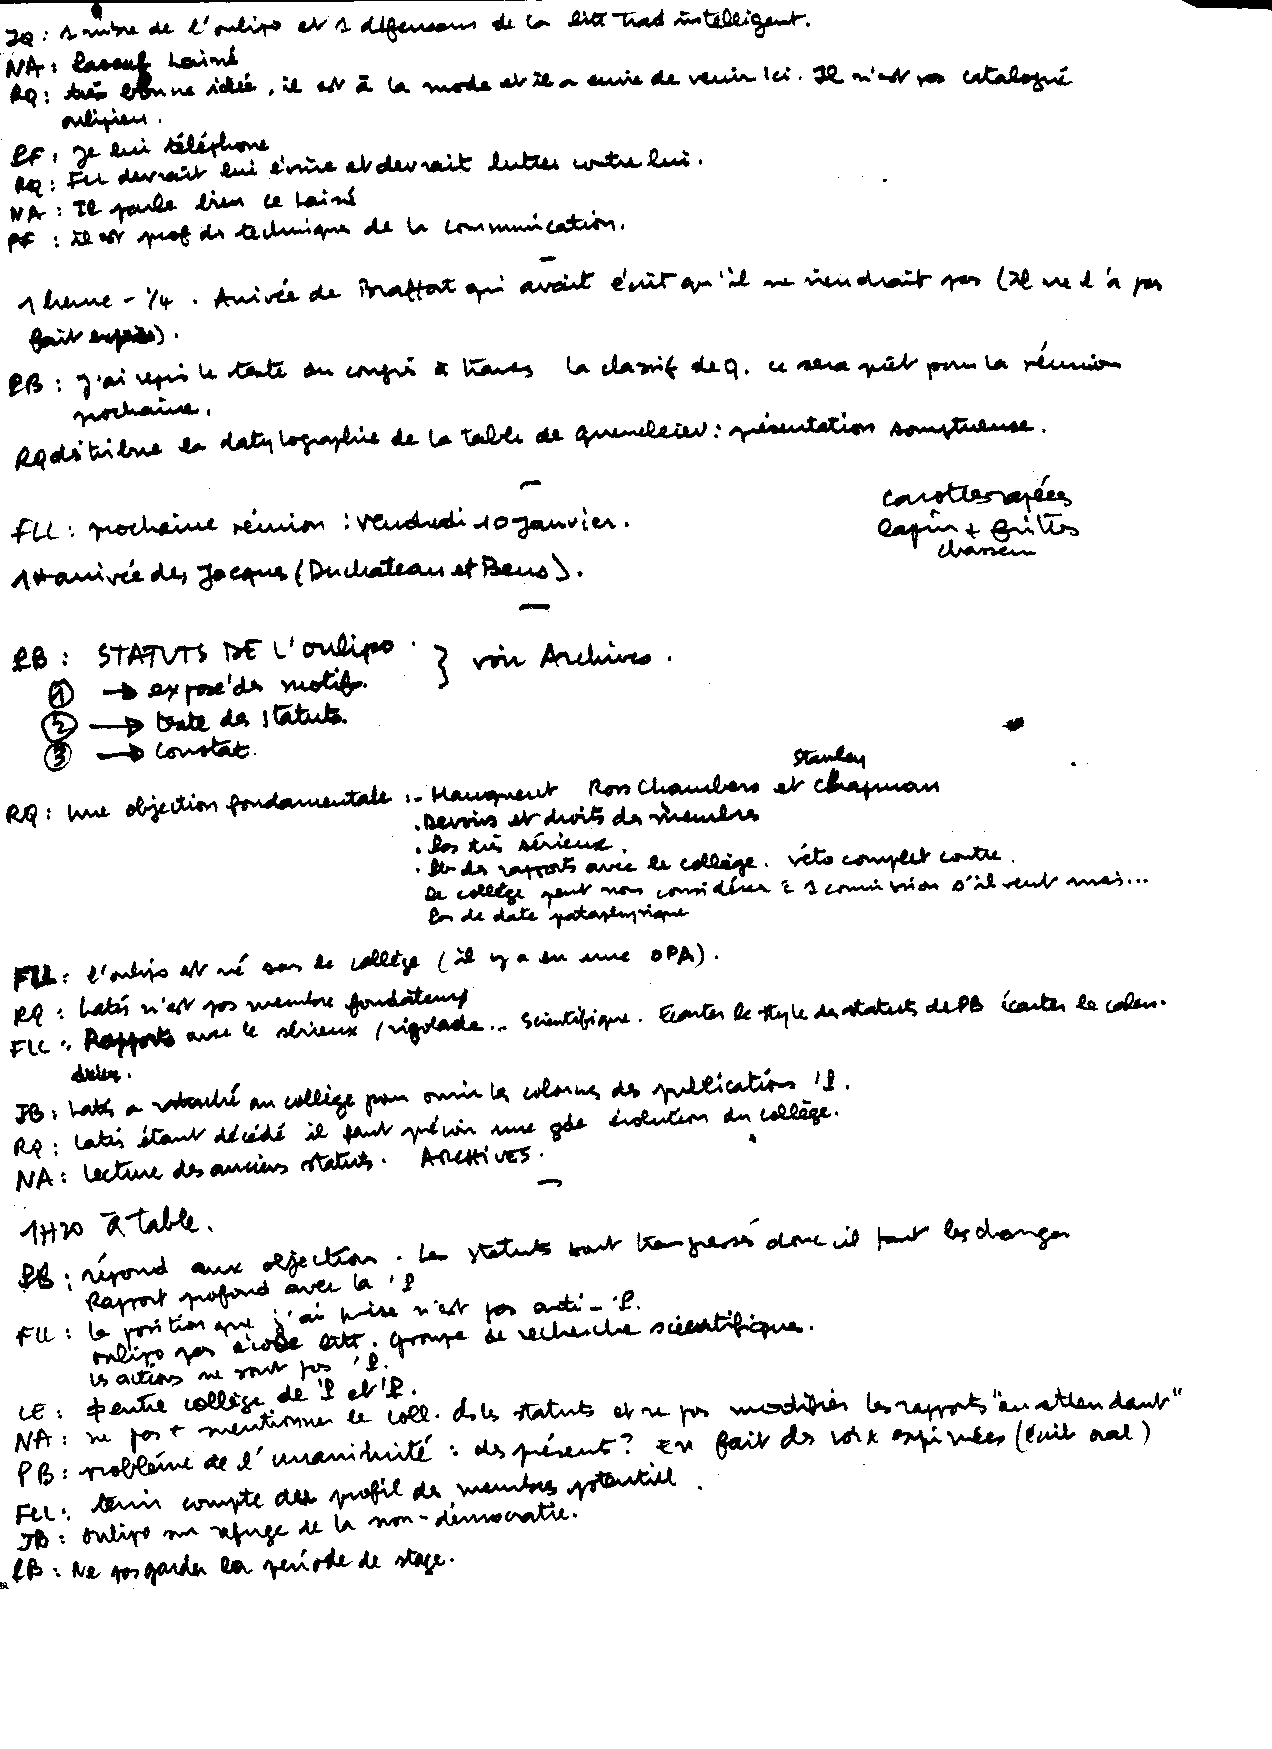 JQ : 1 mbre de l'oulipo et 1 défenseurs de la litt trad intelligent.
NA : Lainé
RQ : très bonne idée, il est à la mode et il a envie de venir ici. Il n'est pas catalogué
oulipien.
PF : Je lui téléphone
RQ : FLL devrait lui écrire et devrait lutter contre lui.
NA : Il parle bien ce Lainé
PF : il est prof de technique de la communication.
1 heure - 1/4. Arrivée de Braffort qui avait écrit qu'il ne viendrait pas (il ne l'a pas
fait exprès).
PB : J'ai repris le texte au congrès à travers la classif de Q. ce sera prêt pour la réunion
prochaine.
RQ distribue la datylographie de la table de Queneleiev : présentation somptueuse.
carottes rapées
lapin + frittes
FLL : prochaine réunion : vendredi 10 janvier.
chasseur
1H arrivée des Jacques (Duchateau et Bens).
PB : STATUTS DE L'Oulipo. } voir Archives.
① → exposé des motifs.
② → texte des statuts.
③ → constat.
Stanley
RQ : une objection fondamentale : - Manquent Ross Chambers et Chapman
. Devoirs et droits des membres
. Pas très sérieux.
. Pb des rapports avec le collège. véto complet contre.
Le collège peut nous considérer c 1 commission s'il veut mais...
Pas de date pataphysique
FLL : l'oulipo est né sans le collège (il y a eu une OPA).
RQ : Latis n'est pas membre fondateur
FLL : Rapports avec le sérieux / rigolade... scientifique. Ecarter le style des statuts de PB écarter le calen-
drier.
JB : Latis a rattaché au collège pour ouvrir les colonnes des publications 'P.
RQ : Latis étant décédé il faut prévoir une gde évolution du collège.
NA : Lecture des anciens statuts. ARCHIVES.
1H20 à table.
PB : répond aux objection. Les statuts sont transgressés donc il faut les changer
Rapport profond avec la 'P
FLL : la position que j'ai prise n'est pas anti-'P.
oulipo pas école litt. groupe de recherche scientifique.
les actions ne sont pas 'P.
CE : ≠ entre collège de 'P et 'P.
NA : ne pas + mentionner le coll. ds les statuts et ne pas modifier les rapports "en attendant"
PB : problème de l'unanimité : des présent ? En fait des voix exprimées (écrit oral)
FLL : tenir compte des profil de membres potentiel.
JB : oulipo un refuge de la non-démocratie.
PB : Ne pas garder la période de stage.